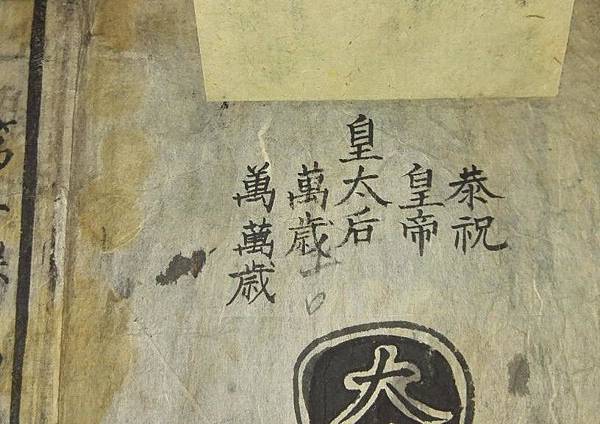 恭祝
皇帝
皇太后
萬歲
萬萬歲
大